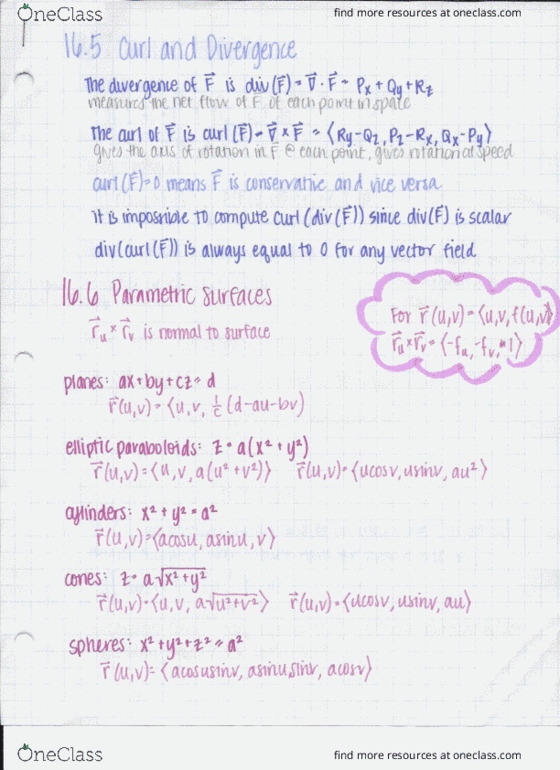 OneClass
find more resources at oneclass.com
16.5 Curl and Divergence
The divergence of F⃗ is div(F⃗) = ∇⃗ · F⃗ = Px + Qy + Rz
measures the net flow of F⃗ of each point in space
The curl of F⃗ is curl(F⃗) = ∇⃗ × F⃗ = ⟨Ry - Qz, Pz - Rx, Qx - Py⟩
gives the axis of rotation in F⃗ @ each point, gives rotational speed
curl(F⃗) = 0 means F⃗ is conservative and vice versa.
it is impossible to compute curl(div(F⃗)) since div(F⃗) is scalar
div(curl(F⃗)) is always equal to 0 for any vector field
16.6 Parametric Surfaces
r⃗u × r⃗v is normal to surface
For r⃗(u,v) = ⟨u, v, f(u,v)⟩
r⃗u × r⃗v = ⟨-fu, -fv, 1⟩
planes: ax + by + cz = d
r⃗(u,v) = ⟨u, v, 1/c (d - au - bv)
elliptic paraboloids: z = a(x² + y²)
r⃗(u,v) = ⟨u, v, a(u² + v²)⟩ r⃗(u,v) = ⟨ucosv, usinv, au²⟩
cylinders: x² + y² = a²
r⃗(u,v) = ⟨acosu, asinu, v⟩
cones: z = a√x² + y²
r⃗(u,v) = ⟨u, v, a√u² + v²⟩ r⃗(u,v) = ⟨ucosv, usinv, au⟩
spheres: x² + y² + z² = a²
r⃗(u,v) = ⟨acosusinv, asinusinv, acosv⟩
OneClass
find more resources at oneclass.com